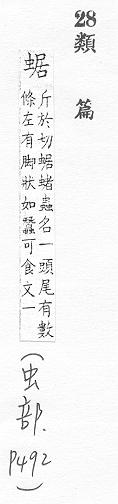 28類篇
蜛
斤於切蜛蝫蟲名一頭尾有數
條左有脚狀如蠶可食文一
(虫部.
P492)